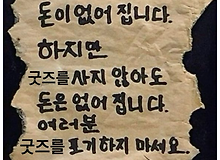 돈이 없어 집니다.
하지만
굿즈를 사지 않아도
돈은 없어 집니다.
여러분
굿즈를 포기하지 마세요.